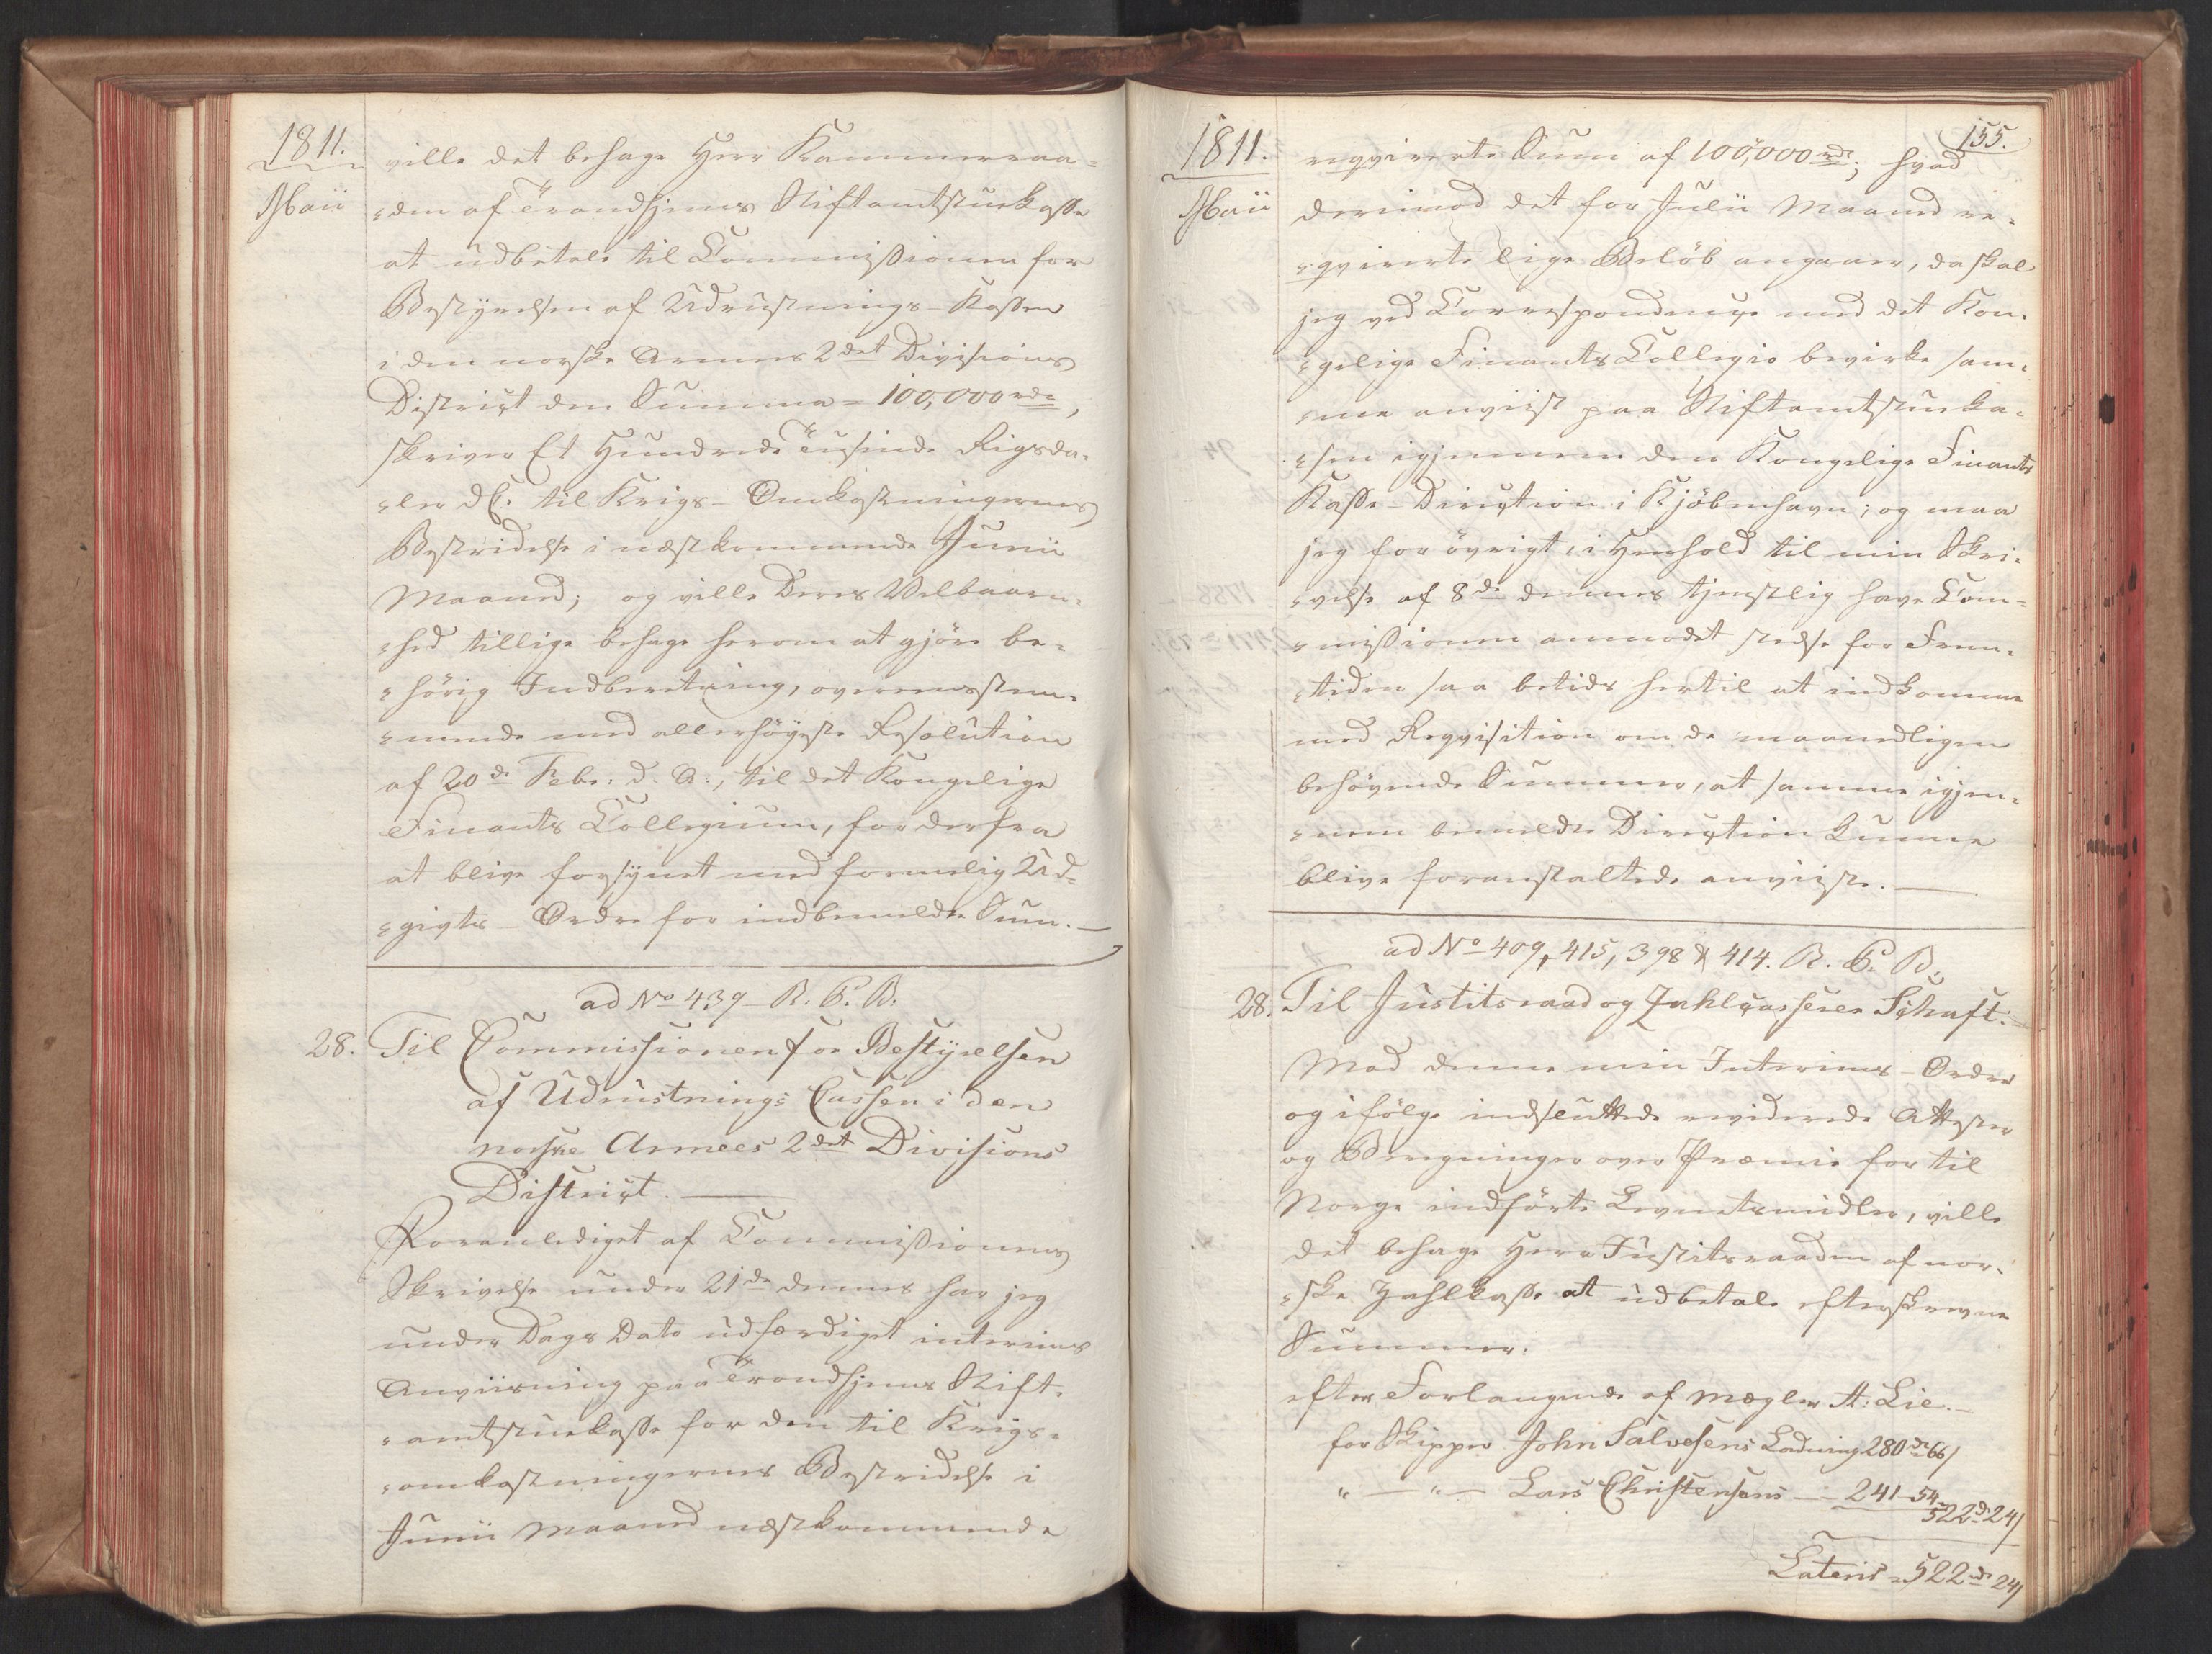 1811.
Maii
ville det behage Herr Kammerraa=
=den af Trondhjems Stiftamtstuekasse
at udbetale til Commissionen for
Bestyrelsen af Udrustnings-Kassen
i den norske Armees 2det Divisions
District den Summa = 100,000 rdr,
skriver Et Hundrede Tusinde Rigsda=
=ler DC. til Krigs-Omkostningernes
Bestridelse i næstkommende Junii
Maaned; og ville Deres Velbaarn=
=hed tillige behage herom at gjöre be=
=hörig Indberetning, overeensstem=
=mende med allerhöyeste Resolution
af 20de Febr: d. A:, til det Kongelige
Finants Collegium, for derfra
at blive forsynet med formelig Ud=
=givts-Ordre for indbemeldte Sum.—
ad No 439 R. C. B.
28. Til Commissionen for Bestÿrelsen
af Udrustnings Cassen i den
norske Armees 2det Divisions
District.—
Foranlediget af Commissionens
Skrivelse under 21de dennes har jeg
under Dags Dato udfærdiget interims
Anviisning paa Trondhjems Stift=
=amtstuekasse for den til Krigs=
=omkostningernes Bestridelse i
Junii Maaned næstkommende
155.
1811.
Maii
reqvirerte Sum af 100,000 rdr; hvad
derimod det for Julii Maaned re=
=qvirerte lige Belöb angaaer, da skal
jeg ved Correspondence med det Kon=
=gelige Finants Collegio bevirke sam=
=me anviist paa Stiftamtstueka=
=sen igjennem den Kongelige Finants
Kasse-Direction i Kjöbenhavn; og maa
jeg for övrigt, i Henhold til min Skri=
=velse af 8de dennes tjenstlig have Com=
=missionen anmodet stedse for Frem=
=tiden saa betids hertil at indkomme
med Reqvisition om de maanedligen
behövende Summer, at samme igjen=
=nem bemeldte Direction kunne
blive foranstaltede anviiste.—
ad No 409, 415, 398 & 414. R. C. B.
28. Til Justitsraad og Zahlcasserer Schaft.
Mod denne min Interims-Ordre
og ifölge indsluttede reviderede Attester
og Beregninger over Præmie for til
Norge indförte Levnetsmidler, ville
det behage Herr Justitsraaden af nor=
=ske Zahlkasse at udbetale efterskrevne
Summer:
efter Forlangende af Mægler A: Lie.—
for Skipper John Salvesens Ladning 280 dr 66/
" — " — Lars Christensens — 241 - 54
522 dr 24/
Lateris = 522 dr 24/